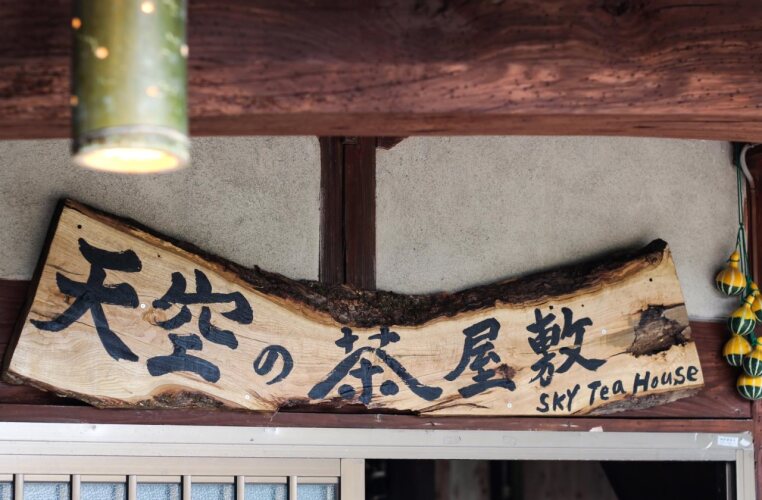 天空の茶屋敷
SKY Tea House